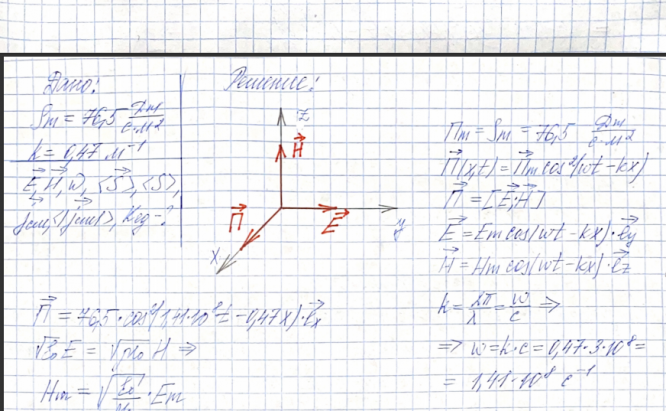 Дано:
Sm = 76,5 Дж/с·м²
k = 0,47 м⁻¹
E⃗, H⃗, w, <S⃗>, <S>,
jсм, <|jсм|>, Kед - ?
Решение:
z
H⃗
П⃗
E⃗
y
x
Пm = Sm = 76,5 Дж/с·м²
П⃗(x,t) = П⃗m cos²(wt - kx)
П⃗ = [E⃗; H⃗]
E⃗ = Em cos(wt - kx)·e⃗y
H⃗ = Hm cos(wt - kx)·e⃗z
k = 2π/λ = w/c ⇒
⇒ w = k·c = 0,47·3·10⁸ =
= 1,41·10⁸ с⁻¹
П⃗ = 76,5·cos²(1,41·10⁸t - 0,47x)·e⃗x
√ε₀ E = √μμ₀ H ⇒
Hm = √ε₀/μ₀ · Em